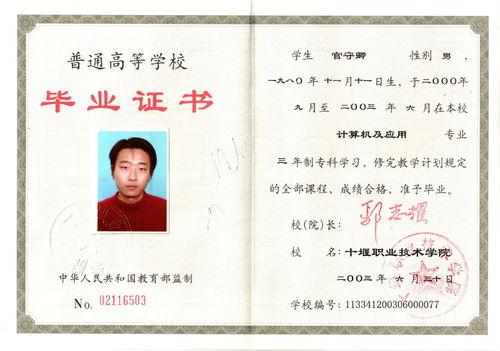 普通高等学校
毕业证书
中华人民共和国教育部监制
No. 02116503
学生 官守卿 性别 男，
一九八〇年十一月十一日生，于二〇〇〇年
九月至二〇〇三年六月在本校
计算机及应用 专业
三年制专科学习，修完教学计划规定
的全部课程，成绩合格，准予毕业。
校(院)长： 郭志耀
校 名： 十堰职业技术学院
二〇〇三年六月三十日
学校编号：113341200306000077